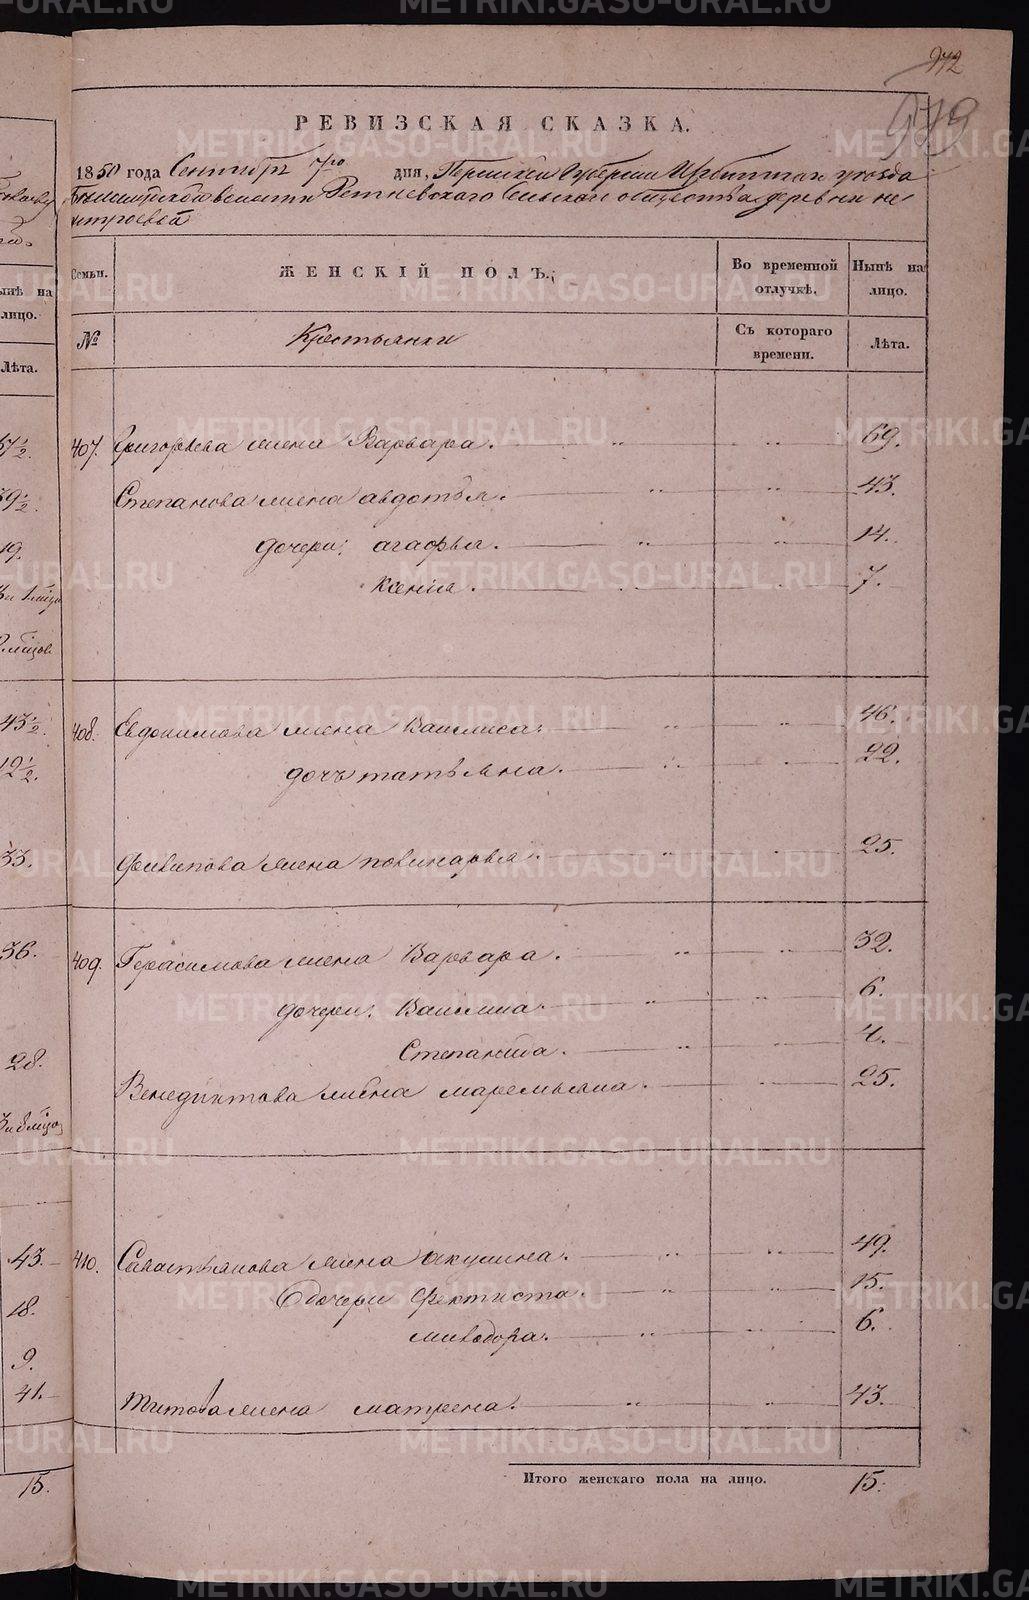 972
979
РЕВИЗСКАЯ СКАЗКА.
1850 года Сентября 7го дня, Пермской Губернии Ирбитскаго уезда
волости Ретневского Сельского общества деревни
СЕМЬИ. ЖЕНСКІЙ ПОЛЪ. Во временной отлучкѣ. Нынѣ на лицо.
№ Крестьянки Съ котораго времени. Лѣта.
407. Григорьева жена Варвара. 69.
Степанова жена авдотья. 43.
дочери: агафья. 14.
Ксенiя. 7.
408. Евдокимова жена Васимиса. 46.
дочь татьяна. 22.
Филипова жена 25.
409. Герасимова жена Варвара. 32.
дочери: 6.
Степанида. 4.
Венедиктова жена маремьяна. 25.
410. Савастьянова жена акулина. 49.
дочери Фектиста. 15.
миводора. 6.
Титова жена матрена. 43.
Итого женскаго пола на лицо. 15.
Нынѣ на лицо.
Лѣта.
57½.
39½.
19.
43½.
12½.
33.
36.
28.
43.
18.
9.
41.
15.
METRIKI.GASO-URAL.RU